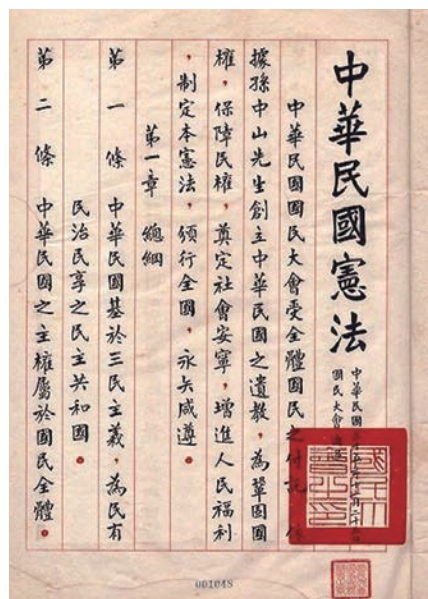 中華民國憲法
中華民國三十五年十二月二十五日
國民大會通過
中華民國國民大會受全體國民之付託，依
據孫中山先生創立中華民國之遺教，為鞏固國
權，保障民權，奠定社會安寧，增進人民福利
，制定本憲法，頒行全國，永矢咸遵。
第一章 總綱
第一條 中華民國基於三民主義，為民有
民治民享之民主共和國。
第二條 中華民國之主權屬於國民全體。
國民大會之印
001048